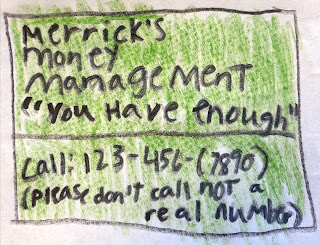 Merrick's
money
management
"You Have enough"
Call: 123-456-(7890)
(please don't call not a
real number)